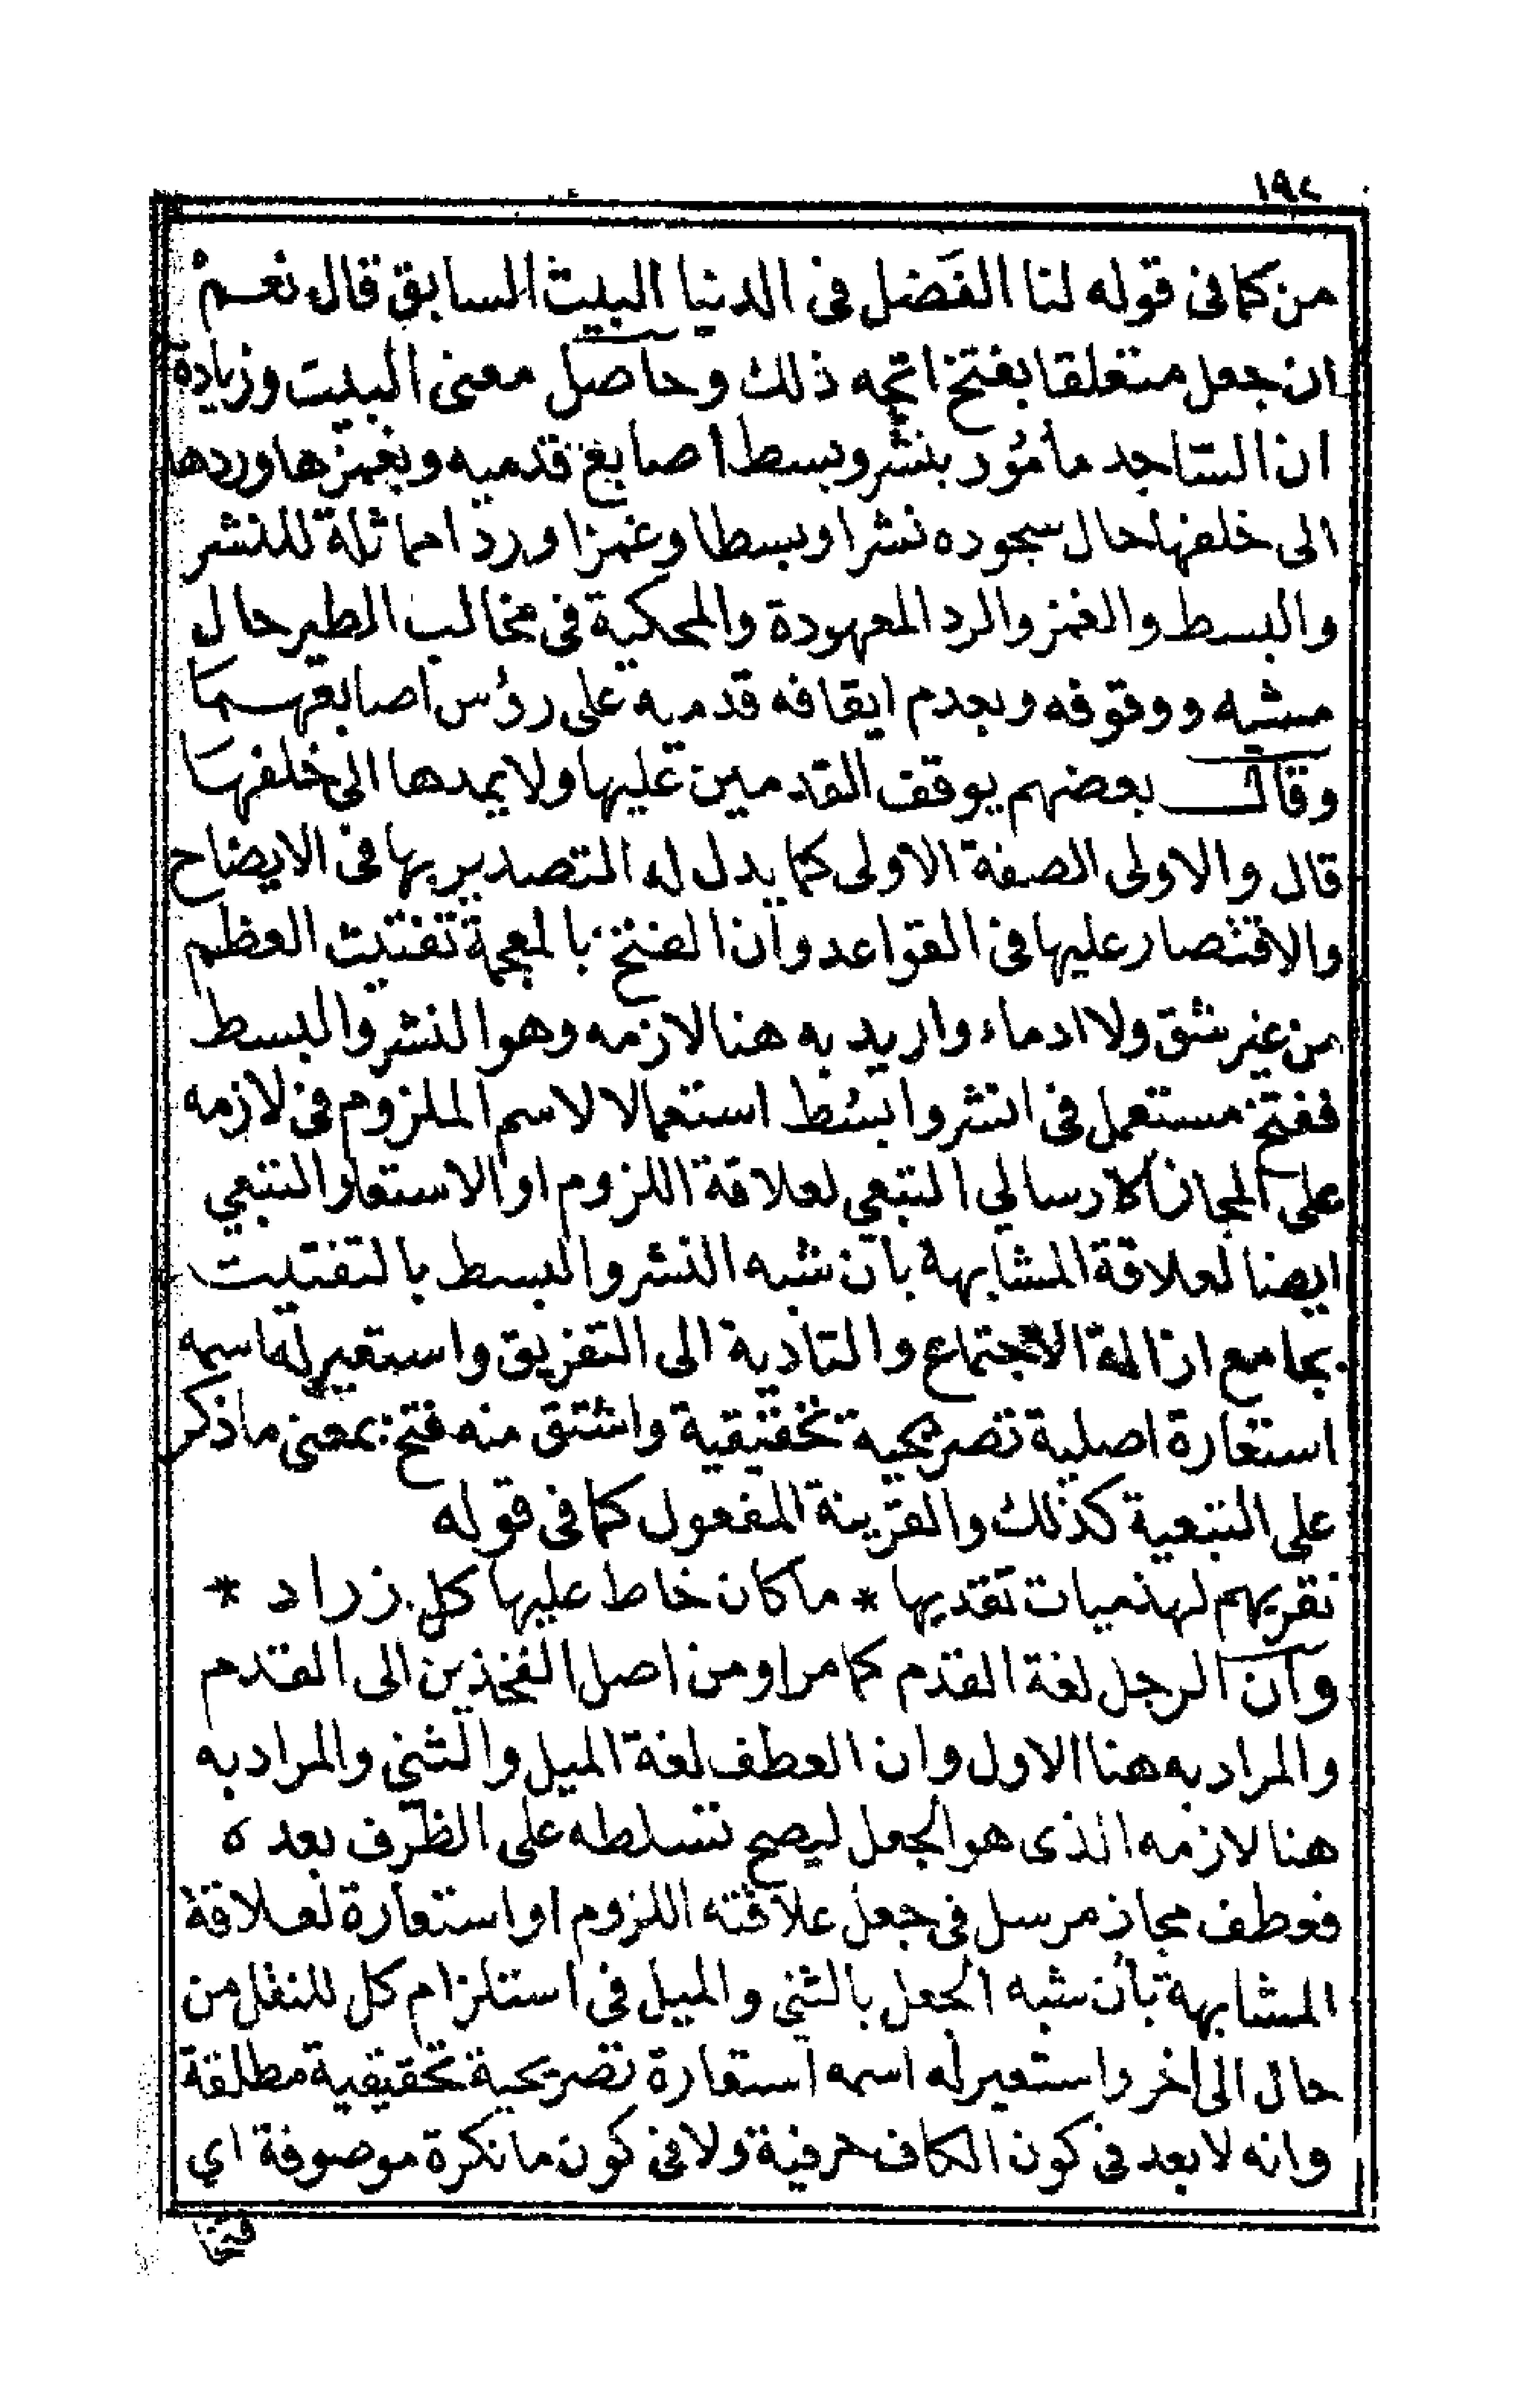 ١٩٢
من كما فى قوله لنا الفضل فى الدنيا البيت السابق قال نعم
ان جعل متعلقا بفتخ اتجه ذلك وحاصل معنى البيت وزيادة
ان الساجد مأمور بنشر وبسط اصابع قدميه وبغمزها وردها
الى خلفها حال سجوده نشرا وبسطا وغمزا وردا مماثلة للنشر
والبسط والغمز والرد المعهودة والمحكية فى مخالب الطير حال
مشيه ووقوفه وبعدم ايقافه قدميه على رؤس اصابعهما
وقال بعضهم يوقف القدمين عليها ولا يمدها الى خلفها
قال والاولى الصفة الاولى كما يدل له التصدير بها فى الايضاح
والاقتصار عليها فى القواعد وان الفتخ بالمعجمة تفتيت العظم
من غير شق ولا ادماء واريد به هنا لازمه وهو النشر والبسط
ففتخ مستعمل فى انشر وابسط استعمالا لاسم الملزوم فى لازمه
على المجاز الارسالي التبعي لعلاقة اللزوم او الاستعار التبعي
ايضا لعلاقة المشابهة بان شبه النشر والبسط بالتفتيت
بجامع ازالة الاجتماع والتادية الى التفريق واستعير له اسمه
استعارة اصلية تصريحية تحقيقية واشتق منه فتخ بمعنى ما ذكر
على التبعية كذلك والقرينة المفعول كما فى قوله
نقريهم لهذميات نقد بها * ما كان خاط عليها كل زراد *
وان الرجل لغة القدم كما مر او من اصل الفخذين الى القدم
والمراد به هنا الاول وان العطف لغة الميل والثني والمراد به
هنا لازمه الذى هو الجعل ليصح تسلطه على الظرف بعده
فعطف مجاز مرسل فى جعل علاقته اللزوم او استعارة لعلاقة
المشابهة بأن شبه الجعل بالثني والميل فى استلزام كل للنقل من
حال الى اخر واستعير له اسمه استعارة تصريحية تحقيقية مطلقة
وانه لا بعد فى كون الكاف حرفية ولا فى كون ما نكرة موصوفة اي
فتخا